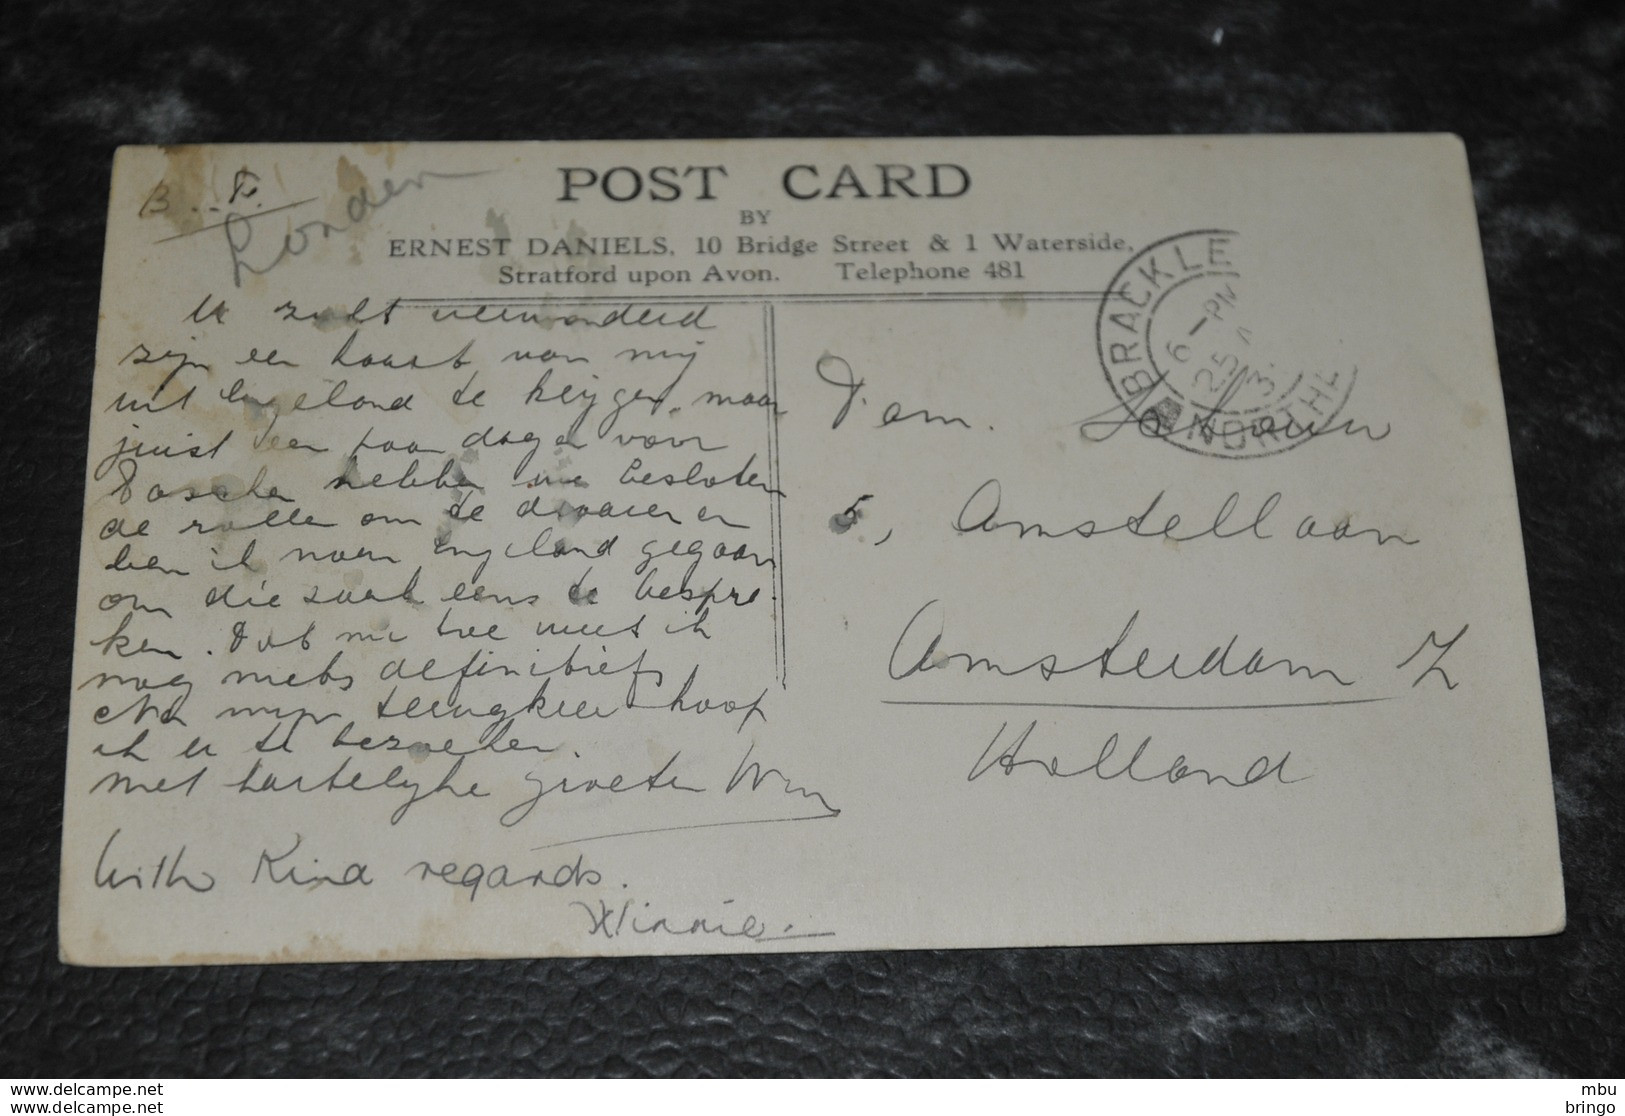 B...F.
Londen
POST CARD
BY
ERNEST DANIELS, 10 Bridge Street & 1 Waterside,
Stratford upon Avon. Telephone 481
U zult verwonderd
zijn een kaart van mij
uit Engeland te krijgen, maar
juist een paar dagen voor
Paschen hebben we besloten
de rollen om te draaien en
ben ik naar Engeland gegaan
om die zaak eens te bespre-
ken. Dat me toe weet ik
nog niets definitiefs
Na mijn terugkeer hoop
ik u te bezoeken.
Met hartelijke groeten Wm
With Kind regards.
Winnie.
BRACKLE
NORTHA
6-PM
25 A
3
Fam.
5, Amstellaan
Amsterdam Z
Holland
www.delcampe.net
www.delcampe.net
mbu
bringo